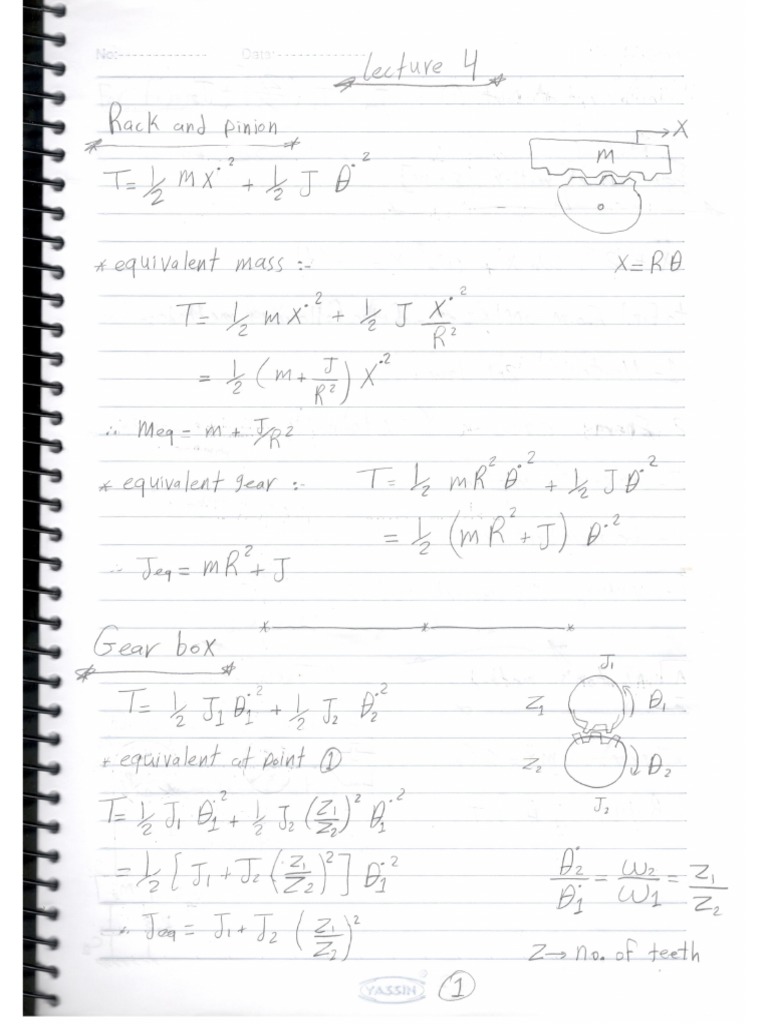 No:-------------- Date:--------------
Lecture 4
Rack and pinion
→ X
m
T = 1/2 m Ẋ² + 1/2 J θ̇²
* equivalent mass :-
X = R θ
T = 1/2 m Ẋ² + 1/2 J Ẋ²/R²
= 1/2 (m + J/R²) Ẋ²
∴ Meq = m + J/R²
* equivalent gear :- T = 1/2 m R² θ̇² + 1/2 J θ̇²
= 1/2 (m R² + J) θ̇²
∴ Jeq = m R² + J
Gear box
J₁
T = 1/2 J₁ θ̇₁² + 1/2 J₂ θ̇₂²
Z₁ θ₁
* equivalent at point ①
Z₂ θ₂
J₂
T = 1/2 J₁ θ̇₁² + 1/2 J₂ (Z₁/Z₂)² θ̇₁²
= 1/2 [J₁ + J₂ (Z₁/Z₂)²] θ̇₁²
θ̇₂/θ̇₁ = ω₂/ω₁ = Z₁/Z₂
∴ Jeq = J₁ + J₂ (Z₁/Z₂)²
Z → no. of teeth
YASSIN ①